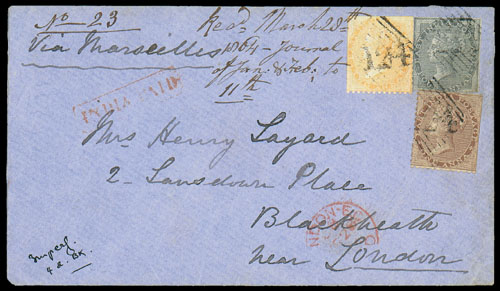 No 23
Via Marseilles
Recd. March 28th
1864 - Journal
of Jan. & Feb. to
11th
INDIA PAID
Mrs Henry Layard
2 - Lansdown Place
Blackheath
near London